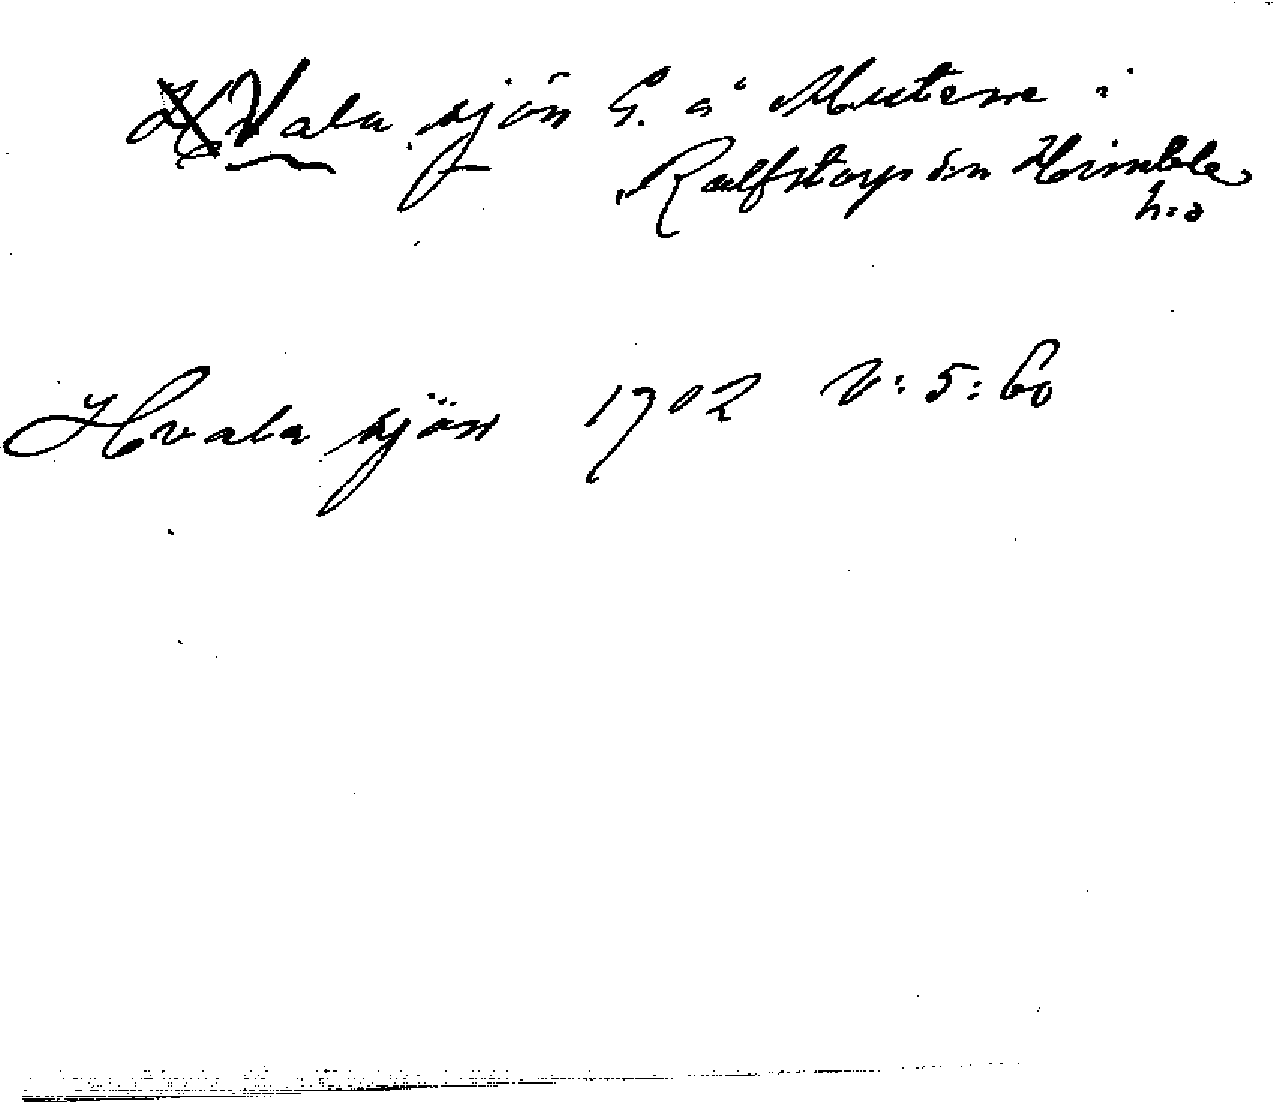 Vala sjön G. å Mutene i
Ralfstorps sn Himble
h:d
Hvala sjön 1702 V: 5: 60